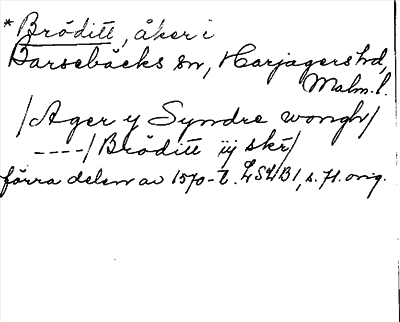 * Bröditt, åker i
Barsebäcks sn, Harjagers hd,
Malm. l.
/Ager y Syndre wongh/
----/Bröditt iij skr/
förra delen av 1570-t. LSLB1, s. 71. orig.